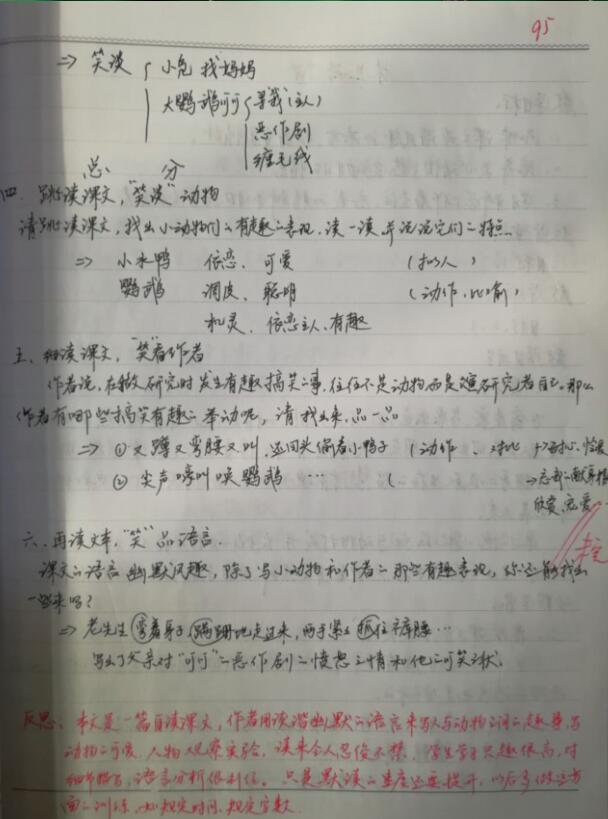 95
⇒ 笑谈 { 小凫找妈妈
大鹦鹉可可 { 寻我（主人）
恶作剧
缠毛线
总 分
四、跳读课文，“笑谈”动物
请跳读课文，找出小动物们的有趣的表现，读一读并说说它们的特点。
⇒ 小水鸭 依恋、可爱 （拟人）
鹦鹉 调皮、聪明 （动作、比喻）
机灵、依恋主人、有趣
五、细读课文，“笑”看作者
作者说，在做研究时发生有趣搞笑的事，往往不是动物，而是研究者自己，那么
作者有哪些搞笑有趣的举动呢，请找出来，品一品
⇒ ① 又蹲又弯腰又叫，还回头偷看小鸭子（动作、对比
② 尖声嚎叫唤鹦鹉 … （
欣赏、宠爱
六、再读文本，“笑”品语言
课文的语言幽默风趣，除了写小动物和作者的那些有趣表现，你还能找出
一些来吗？
⇒ 老先生弯着身子，蹒跚地走过来，两手紧紧抓住裤腰…
写出了父亲对“可可”的恶作剧的愤怒之情和他的可笑之状。
反思：本文是一篇自读课文，作者用诙谐幽默的语言来写人与动物之间的趣事，写
动物的可爱，人物观察实验，读来令人忍俊不禁，学生学习兴趣很高，对
细节描写，语言分析很到位。只是默读的速度还要提升，以后多做这方
面的训练，如规定时间、规定字数。